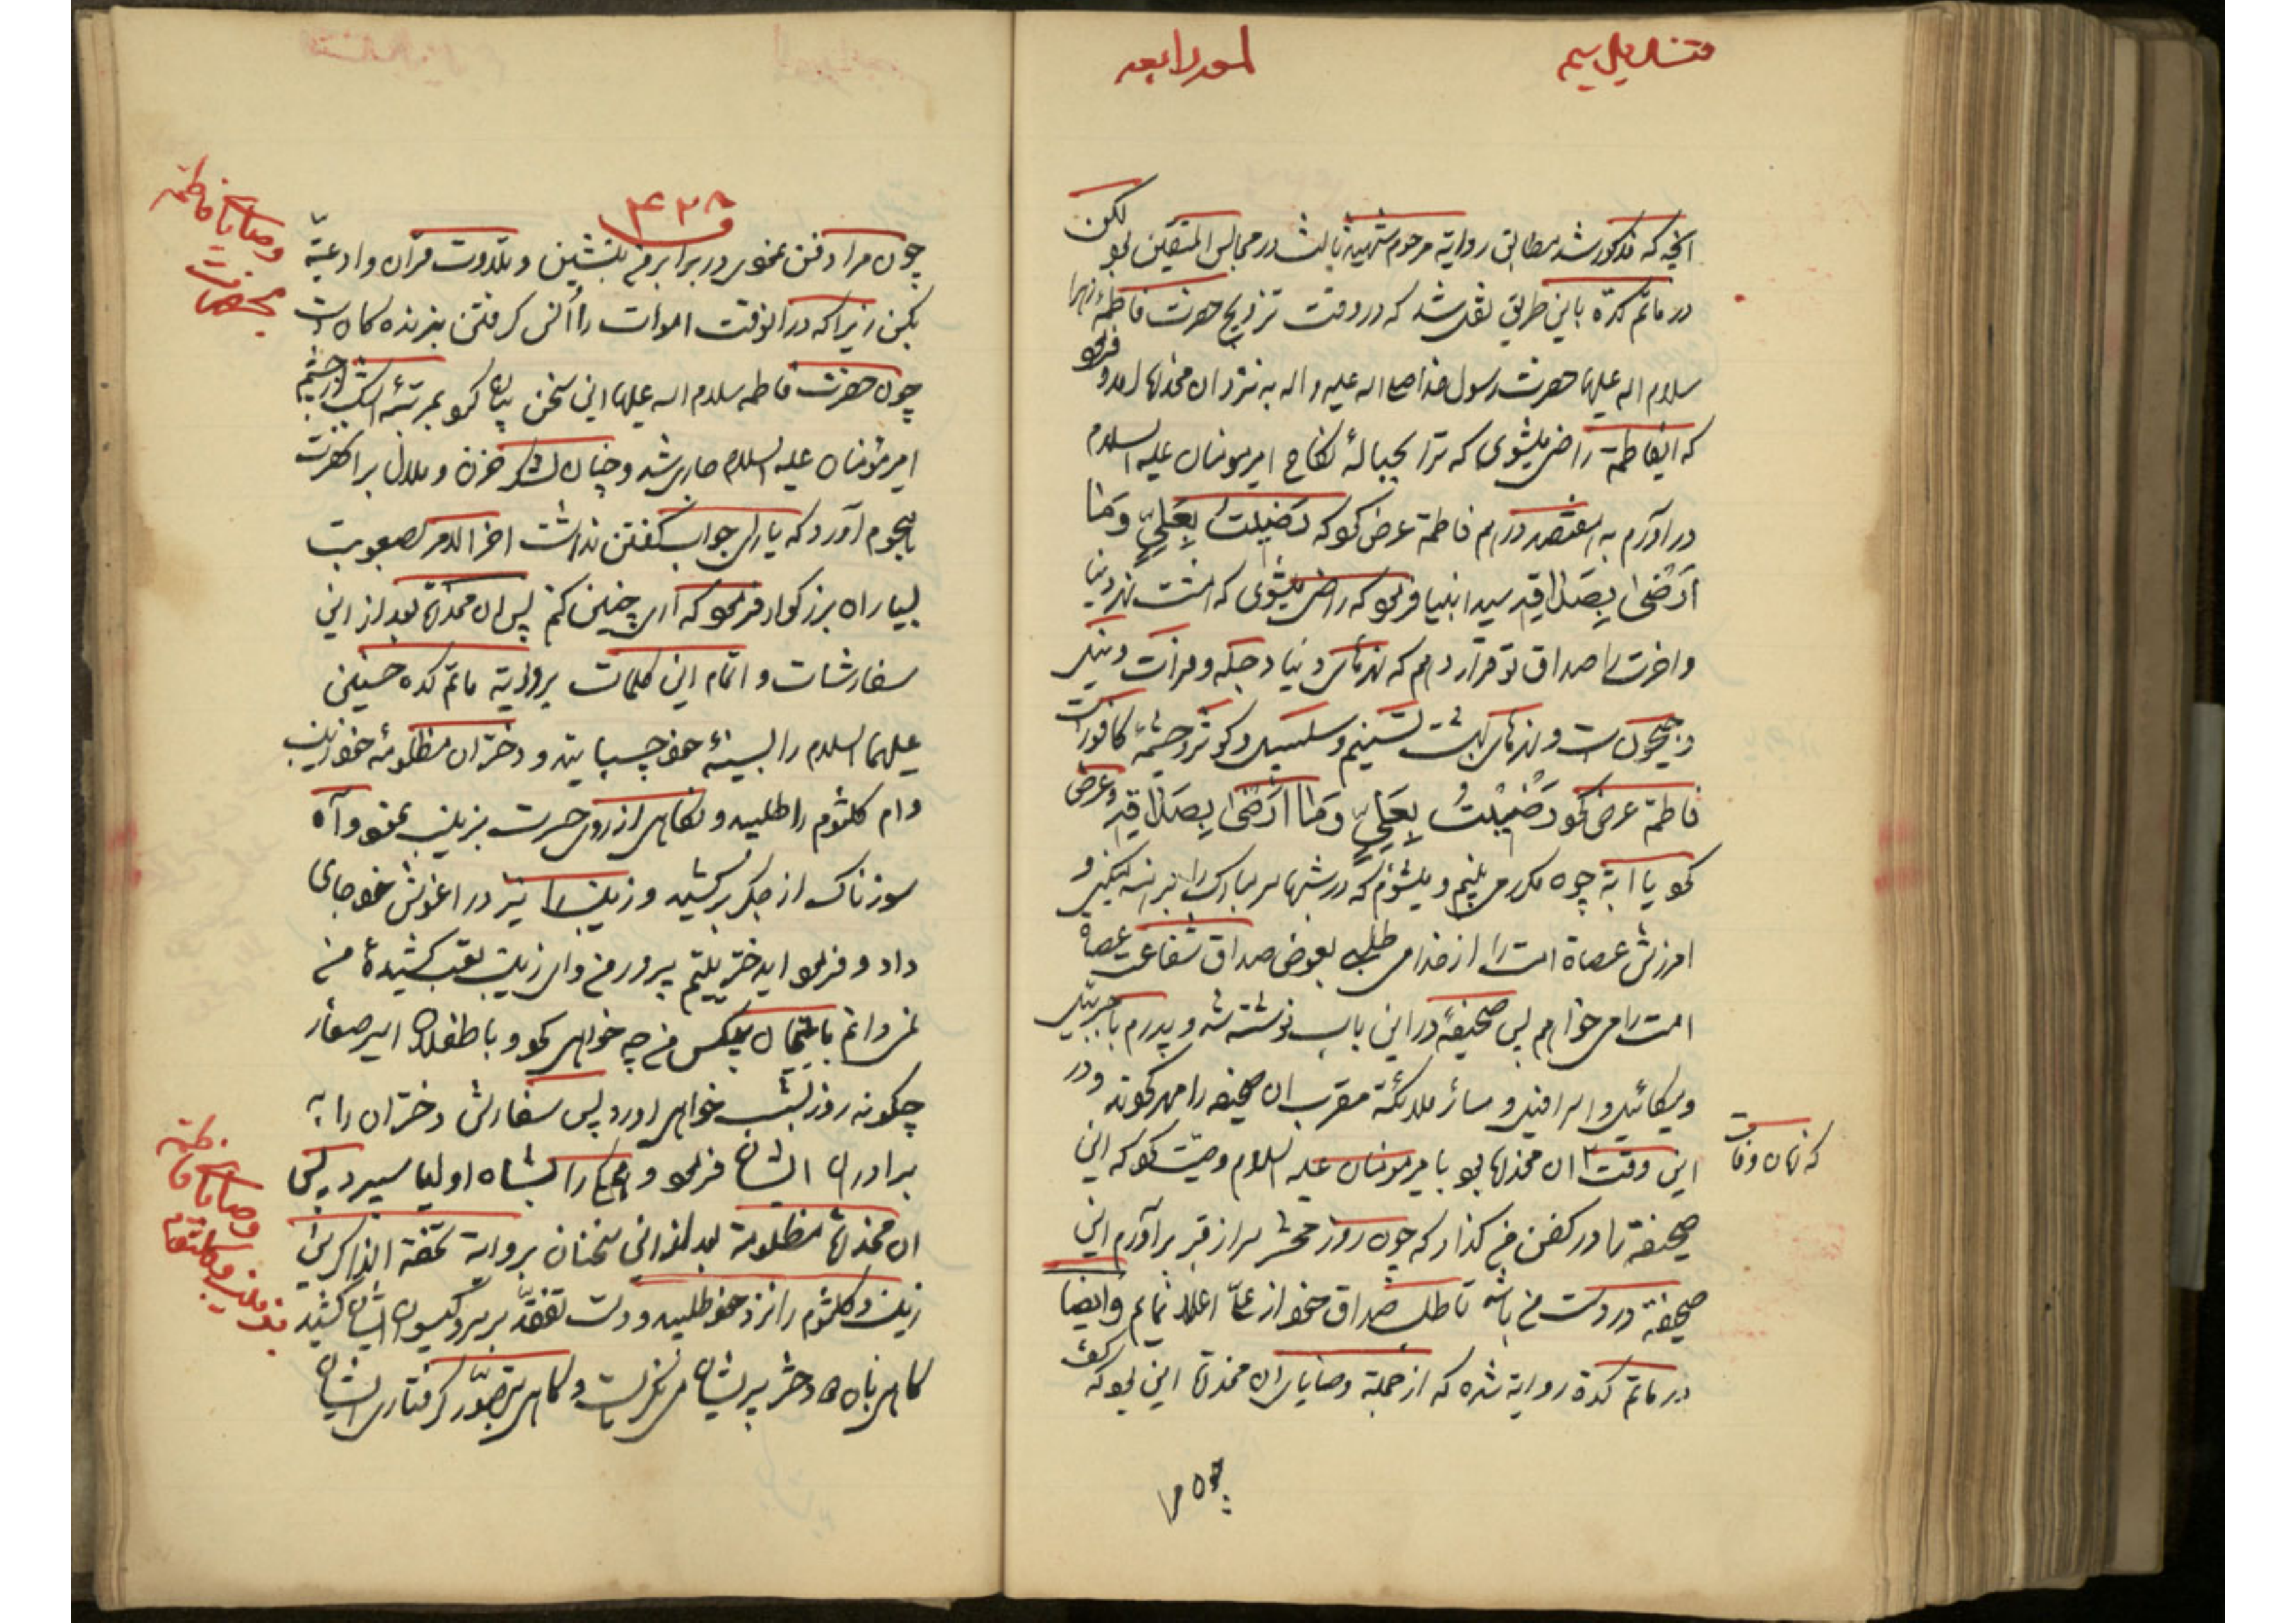 لمعه رابعه
آنچه که مذکور شد مطابق روایة مرحوم شهید ثالث در مجالس المتقین بود لکن
در ماتم کده باین طریق نقل شد که در وقت تزویج حضرت فاطمه زهرا
سلام اله علیها حضرت رسول خدا صلی اله علیه و اله به نزد ان مخدره امد و فرمود
که ایفاطمة راضی میشوی که ترا بحبالهٔ نکاح امیرمومنان علیه السلام
در اورم به درهم فاطمة عرض کرد که رَضیتُ بِعَلیٍّ وَمٰا
اَرْضٰی بِصَداقِه سید انبیا فرمود که راضی میشوی که هشت نهر دنیا
و اخرت را صداق تو قرار دهم که نهرهای دنیا دجله و فرات و نیل
و جیحون است و نهرهای بهشت تسنیم و سلسبیل و کوثر و چشمهٔ کافور است
فاطمة عرض نمود رَضیْتُ بِعَلیٍّ وَمٰا اَرْضٰی بِصَداقِه و عرض
نمود یا ابة چون مکرر می بینم و میشنوم که در شبها سر مبارک را برهنه میکنی و
امرزش عصاة امت را از خدا می طلبی بعوض صداق شفاعت عصاة
امت را می خواهم پس صحیفهٔ در این باب نوشته شد و پدرم با جبرئیل
و میکائیل و اسرافیل و سائر ملائکة مقرب ان صحیفه را مهر نمودند و در
این وقت ان مخدره بود با میرمومنان علیه السلام وصیت نمود که این
که زمان وفات
صحیفة را در کفن من گذار که چون روز محشر سر از قبر برآورم این
صحیفة در دست من باشد تا طلب صداق خود از علی اعلا نمایم وایضا
در ماتم کدة روایة شده که از جملة وصایای ان مخدرة این بود که گفت
چون مرا
۴۲۸
وصایای فاطمة
بحضرت
چون مرا دفن نمودی در برابر من بنشین و بتلاوت قرآن و ادعیّه
بکن زیرا که در انوقت اموات را اُنس گرفتن بزنده کان است
چون حضرت فاطمه سلام اله علیها این سخن بیان نمود بمرتبهٔ اشک از چشم
امیرمؤمنان علیه السلام جاری شد و چنان لشکر حزن و ملال بر انحضرت
هجوم آورد که یارای جواب گفتن نداشت اخر الامر بصعوبت
بسیار ان بزرگوار فرمود که آری چنین کنم پس ان مخدرة بعد از این
سفارشات و اتمام این کلمات بروایة ماتم کده حسنین
علیهما السلام را بسینهٔ خود چسبانید و دختران مظلومهٔ خود زینب
و ام کلثوم را طلبید و نگاهی از روی حسرت بزینب نمود و آه
سوزناک از جگر برکشید و زینب را نیز در اغوش خود جای
داد و فرمود ایدختر یتیم پرور من وای زینب تعب کشیدهٔ من
نمی دانم با یتیمان بیکس من چه خواهی نمود و با طفلان اسیر صغار
چگونه روز بشب خواهی اورد پس سفارش دختران را به
برادران ایشان فرمود و همه را بشاه اولیا سپرد پس
وصایای فاطمة
بزینب و کلثوم
ان مخدرة مظلومة بعد از این سخنان بروایة تحفة الذاکرین
زینب و کلثوم را نزد خود طلبید و دست تفقّد بر سر و گیسوی ایشان کشید
گاهی بان دو دختر پریشان می نگریست و گاهی بتصوّر گرفتاری ایشان